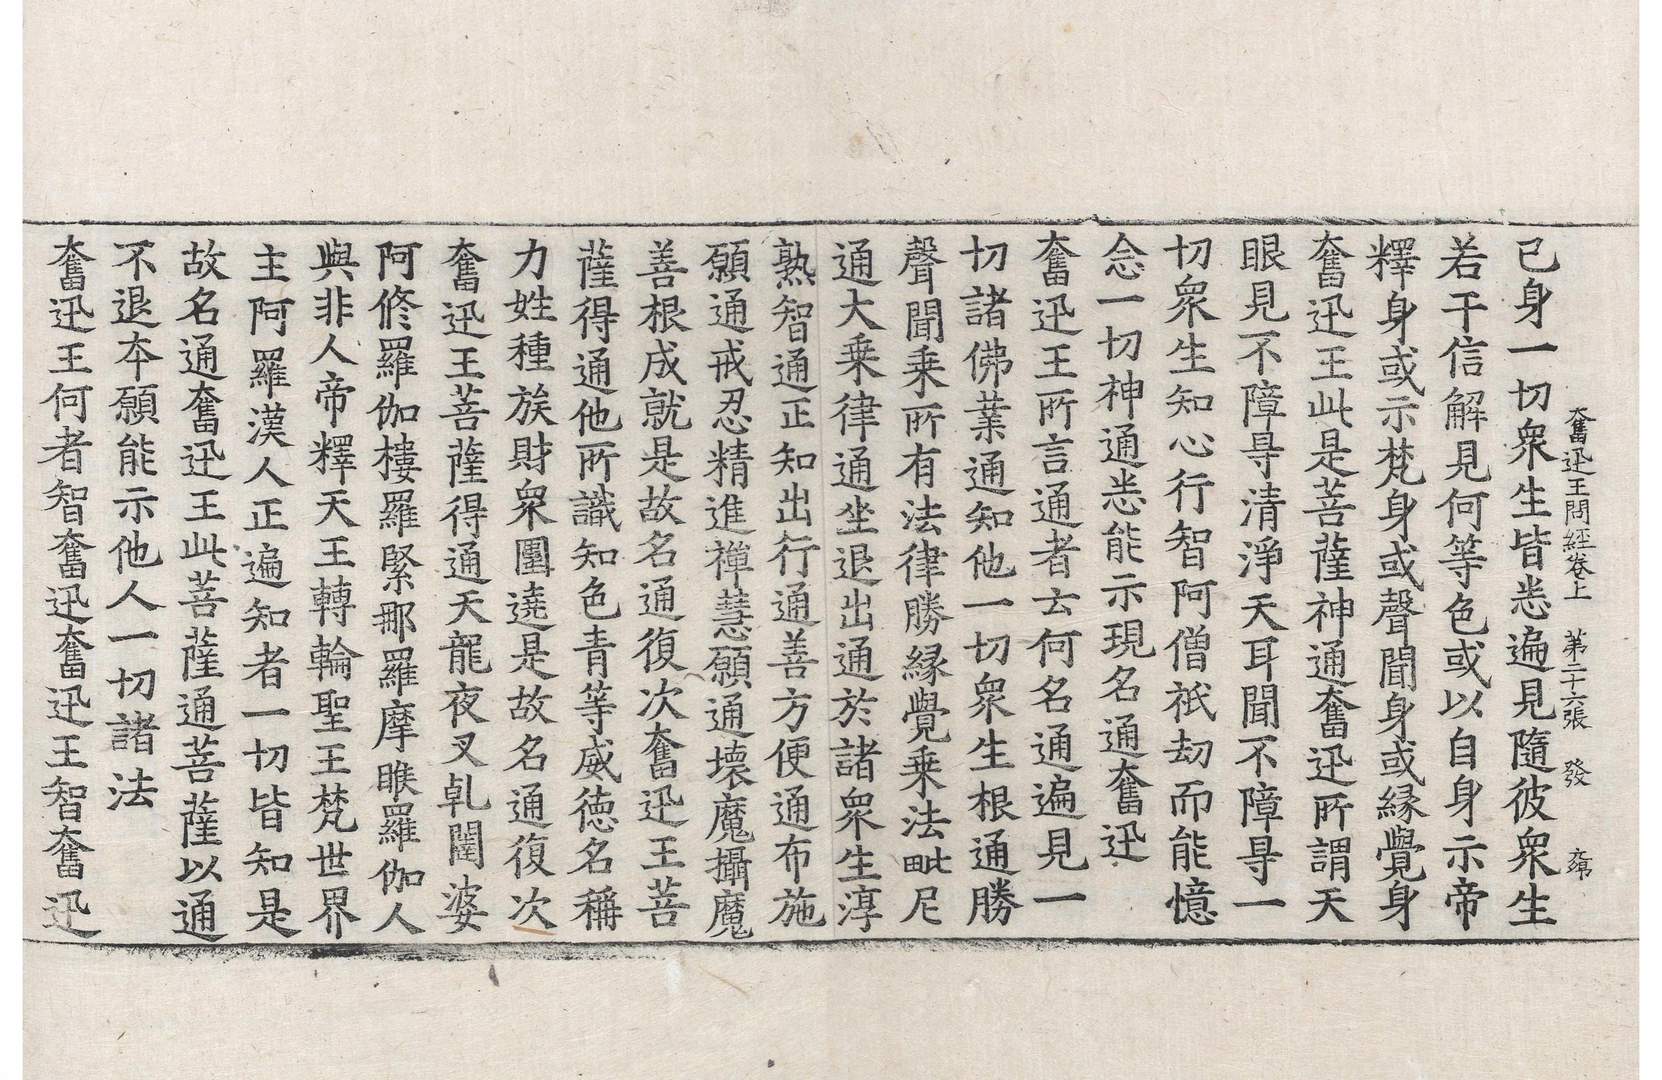 奮迅王問經卷上　第二十六張　發
已身一切衆生皆悉遍見隨彼衆生
若干信解見何等色或以自身示帝
釋身或示梵身或聲聞身或縁覺身
奮迅王此是菩薩神通奮迅所謂天
眼見不障㝵清淨天耳聞不障㝵一
切衆生知心行智阿僧祇劫而能憶
念一切神通悉能示現名通奮迅
奮迅王所言通者云何名通遍見一
切諸佛業通知他一切衆生根通勝
聲聞乗所有法律勝縁覺乗法毗尼
通大乗律通坐退出通於諸衆生淳
熟智通正知出行通善方便通布施
願通戒忍精進禪慧願通壞魔攝魔
善根成就是故名通復次奮迅王菩
薩得通他所識知色青等威徳名稱
力姓種族財衆圍遶是故名通復次
奮迅王菩薩得通天龍夜叉乹闥婆
阿修羅伽樓羅緊那羅摩睺羅伽人
與非人帝釋天王轉輪聖王梵世界
主阿羅漢人正遍知者一切皆知是
故名通奮迅王此菩薩通菩薩以通
不退夲願能示他人一切諸法
奮迅王何者智奮迅奮迅王智奮迅